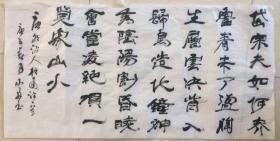 岱宗夫如何齊
魯青未了盪胸
生層雲決眥入
歸鳥造化鐘神
秀陰陽割昏曉
會當凌絕頂一
覽衆山小
詩人杜甫詩